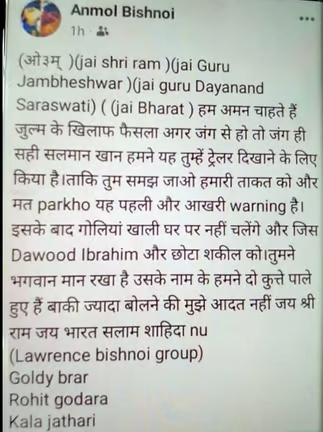 Anmol Bishnoi
1h
(ओ३म् )(jai shri ram )(jai Guru
Jambheshwar )(jai guru Dayanand
Saraswati) ( (jai Bharat ) हम अमन चाहते हैं
जुल्म के खिलाफ फैसला अगर जंग से हो तो जंग ही
सही सलमान खान हमने यह तुम्हें ट्रेलर दिखाने के लिए
किया है।ताकि तुम समझ जाओ हमारी ताकत को और
मत parkho यह पहली और आखरी warning है।
इसके बाद गोलियां खाली घर पर नहीं चलेंगे और जिस
Dawood Ibrahim और छोटा शकील को।तुमने
भगवान मान रखा है उसके नाम के हमने दो कुत्ते पाले
हुए हैं बाकी ज्यादा बोलने की मुझे आदत नहीं जय श्री
राम जय भारत सलाम शाहिदा nu
(Lawrence bishnoi group)
Goldy brar
Rohit godara
Kala jathari